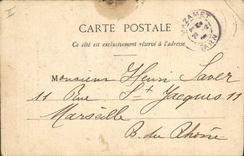 CARTE POSTALE
Ce côté est exclusivement réservé à l'adresse
MAZAMET
TARN
Monsieur Henri Saver
11 Rue St Jacques 11
Marseille
B. du Rhône